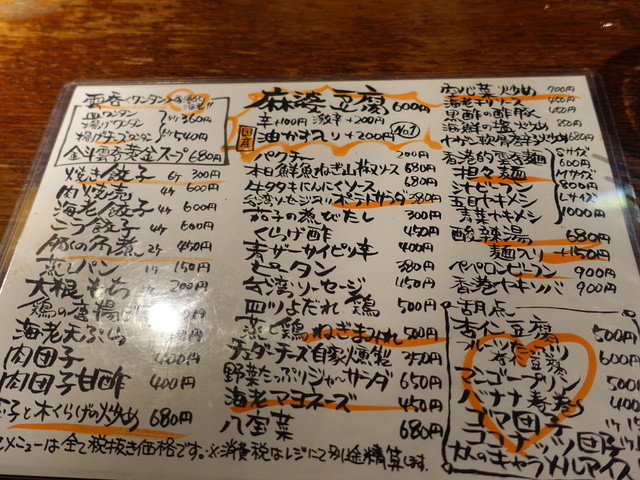 雲呑<ワンタン>
皿ワンタン 4ヶ360円
揚げワンタン
揚げチーズワンタン 4ヶ540円
黄金スープ 680円
焼き餃子 6ヶ 300円
肉焼売 4ヶ 600円
海老餃子 4ヶ 600円
ニラ餃子 4ヶ 600円
豚の角煮 2ヶ 450円
蒸しパン 1ヶ 150円
大根もち 1ヶ 200円
鶏の唐揚
海老天ぷら
肉団子 400円
肉団子甘酢 400円
玉子と木くらげの炒め 680円
麻婆豆腐 600円
辛+100円 激辛+200円
国産 油かす入り+200円 No1
パクチー 200円
ねぎ山椒ソース 680円
牛タタキにんにくソース 680円
ポテトサラダ 380円
茄子の煮びたし 300円
くらげ酢 450円
青ザーサイピリ辛 400円
ピータン 380円
台湾ソーセージ 450円
四川よだれ鶏 500円
蒸し鶏ねぎまみれ 500円
チェダーチーズ自家燻製 350円
野菜たっぷりジャージャンサラダ 650円
海老マヨネーズ 450円
八宝菜 680円
空心菜炒め 700円
海老チリソース 450円
黒酢の酢豚 450円
海鮮の塩炒め 850円
ヤゲン軟骨唐辛子炒め 680円
香港的雲呑麺
担々麺
汁ビーフン
五目ヤキメン
青菜ヤキメン
Sサイズ 600円
Mサイズ 800円
Lサイズ 1000円
酸辣湯 680円
麺入り +150円
ペペロンビーフン 900円
香港ヤキソバ 900円
甜点
杏仁豆腐 500円
フルーツたっぷり杏仁豆腐 600円
マンゴープリン 500円
バナナ春巻き 400円
ゴマ団子
ココナッツ団子
大人のキャラメルアイス
メニューは全て税抜き価格です。※消費税はレジにて別途精算します。